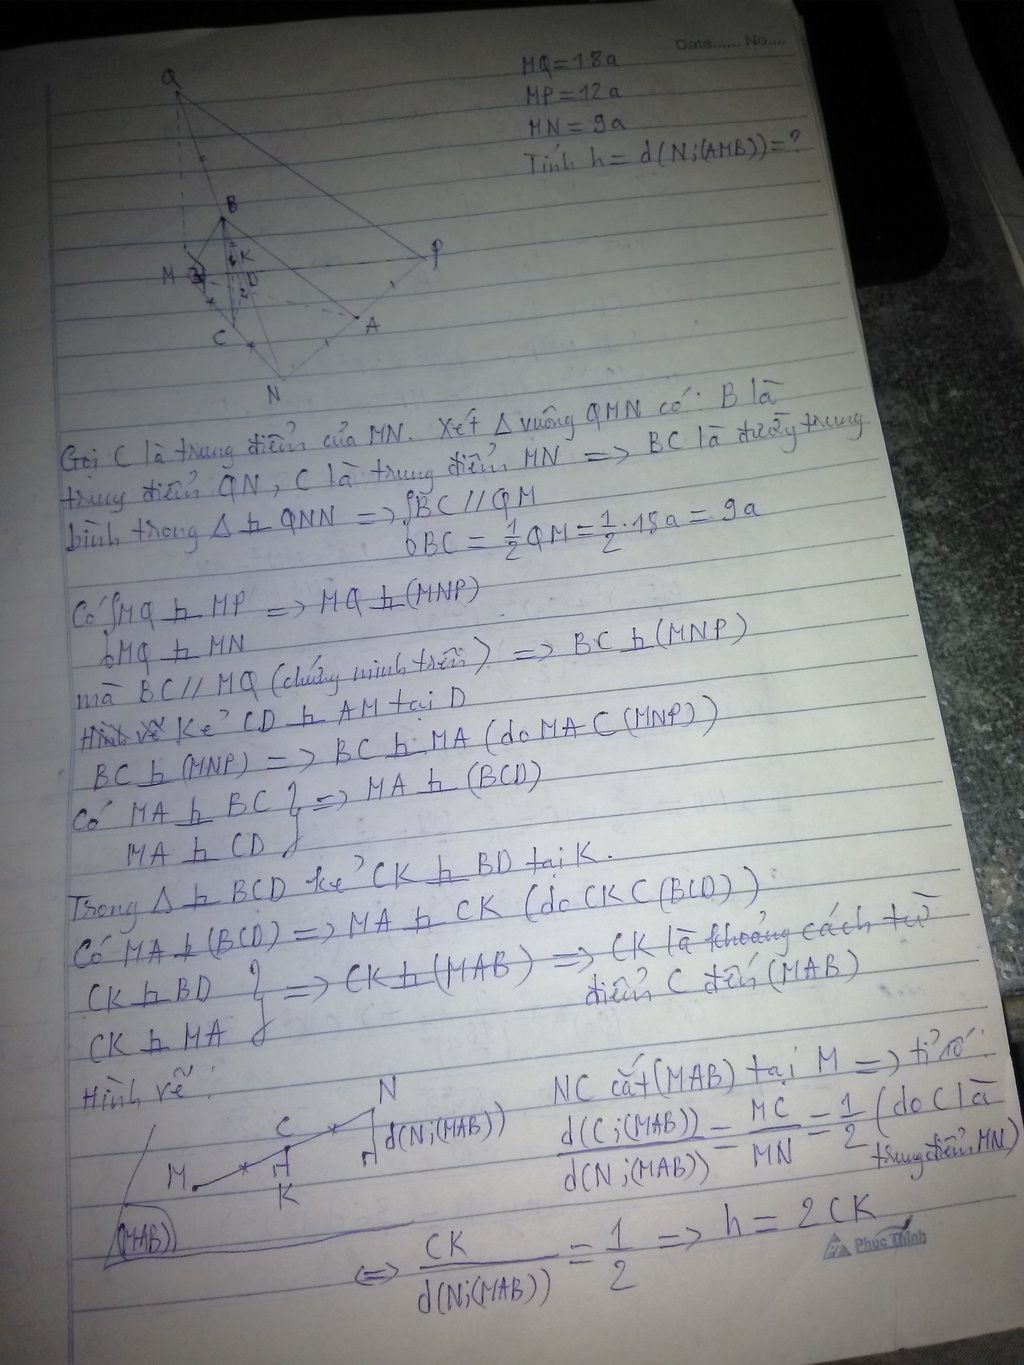 Date...... No....
MQ=18a
MP=12a
MN=9a
Tính h= d(N;(AMB))=?
Q
B
K
D
M
P
C
A
N
Gọi C là trung điểm của MN. Xét Δ vuông QMN có: B là
trung điểm QN, C là trung điểm MN => BC là đường trung
bình trong Δ ⊥ QNN => {BC // QM
BC = 1/2 QM = 1/2 . 18a = 9a
Có {MQ ⊥ MP => MQ ⊥ (MNP)
MQ ⊥ MN
mà BC // MQ (chứng minh trên) => BC ⊥ (MNP)
Hình vẽ Kẻ CD ⊥ AM tại D
BC ⊥ (MNP) => BC ⊥ MA (do MA ⊂ (MNP))
Có MA ⊥ BC } => MA ⊥ (BCD)
MA ⊥ CD
Trong Δ ⊥ BCD kẻ CK ⊥ BD tại K.
Có MA ⊥ (BCD) => MA ⊥ CK (do CK ⊂ (BCD))
CK ⊥ BD } => CK ⊥ (MAB) => CK là khoảng cách từ
điểm C đến (MAB)
CK ⊥ MA
Hình vẽ:
N
C
d(N;(MAB))
M
K
(MAB)
NC cắt (MAB) tại M => tỉ số:
d(C;(MAB))/d(N;(MAB)) = MC/MN = 1/2 (do C là
trung điểm MN)
<=> CK/d(N;(MAB)) = 1/2 => h = 2CK
Phúc Thịnh